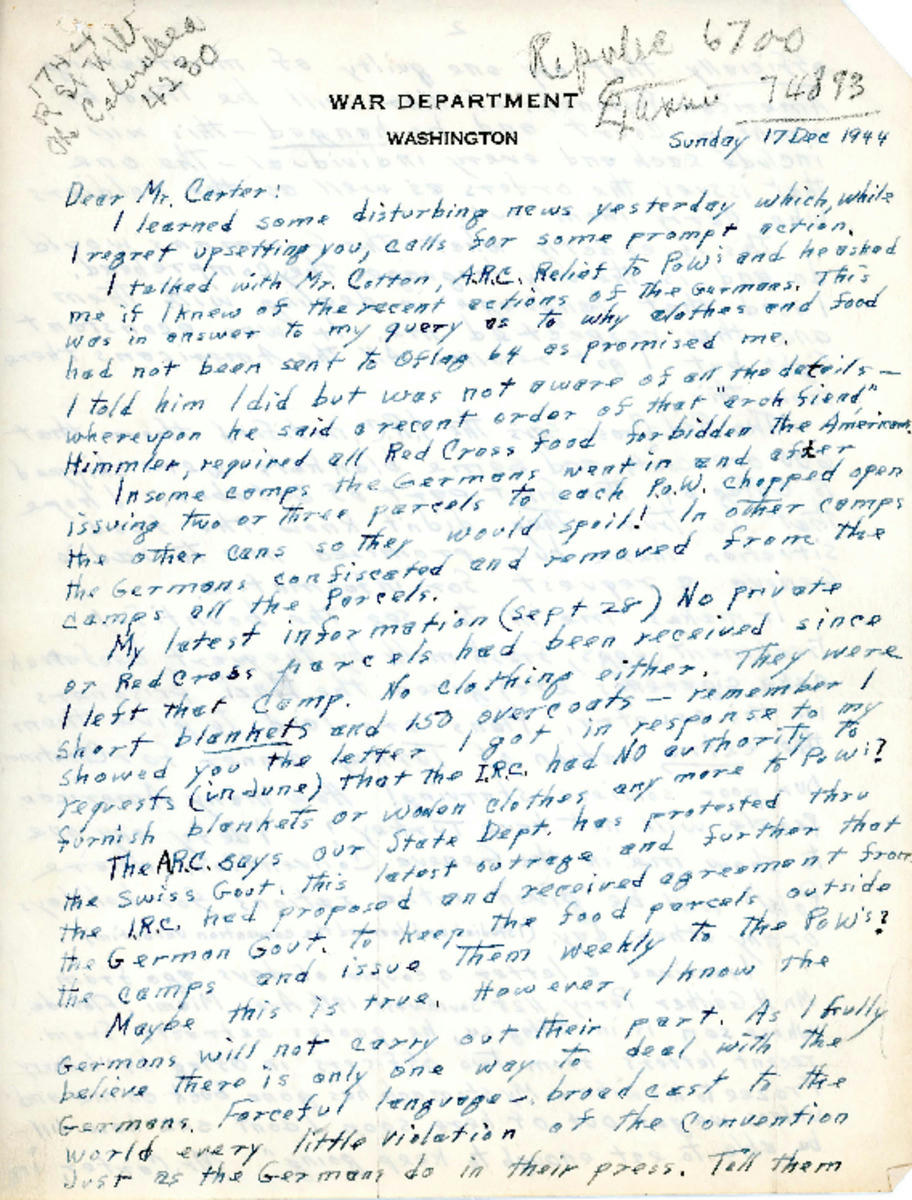 17th +
R St NW
The Columbia
4230
Republic 6700
74893
WAR DEPARTMENT
WASHINGTON
Sunday 17 Dec 1944
Dear Mr. Carter:
I learned some disturbing news yesterday which, while
I regret upsetting you, calls for some prompt action.
I talked with Mr. Cotton, A.R.C. Relief to PoW's and he asked
me if I knew of the recent actions of the Germans. This
was in answer to my query as to why clothes and food
had not been sent to Oflag 64 as promised me.
I told him I did but was not aware of all the details —
whereupon he said a recent order of that "arch fiend",
Himmler, required all Red Cross food forbidden the Americans.
In some camps the Germans went in and after
issuing two or three parcels to each P.o.W. chopped open
the other cans so they would spoil! In other camps
the Germans confiscated and removed from the
camps all the parcels.
My latest information (Sept 28) No private
or Red Cross parcels had been received since
I left that camp. No clothing either. They were
short blankets and 150 overcoats — remember I
showed you the letter I got in response to my
requests (in June) that the I.R.C. had NO authority to
furnish blankets or woolen clothes any more to PoW's?
The A.R.C. says our State Dept. has protested thru
the Swiss Govt. this latest outrage and further that
the I.R.C. had proposed and received agreement from
the German Govt. to keep the food parcels outside
the camps and issue them weekly to the PoW's?
Maybe this is true. However, I know the
Germans will not carry out their part. As I fully
believe there is only one way to deal with the
Germans. Forceful language — broadcast to the
world every little violation of the Convention
just as the Germans do in their press. Tell them